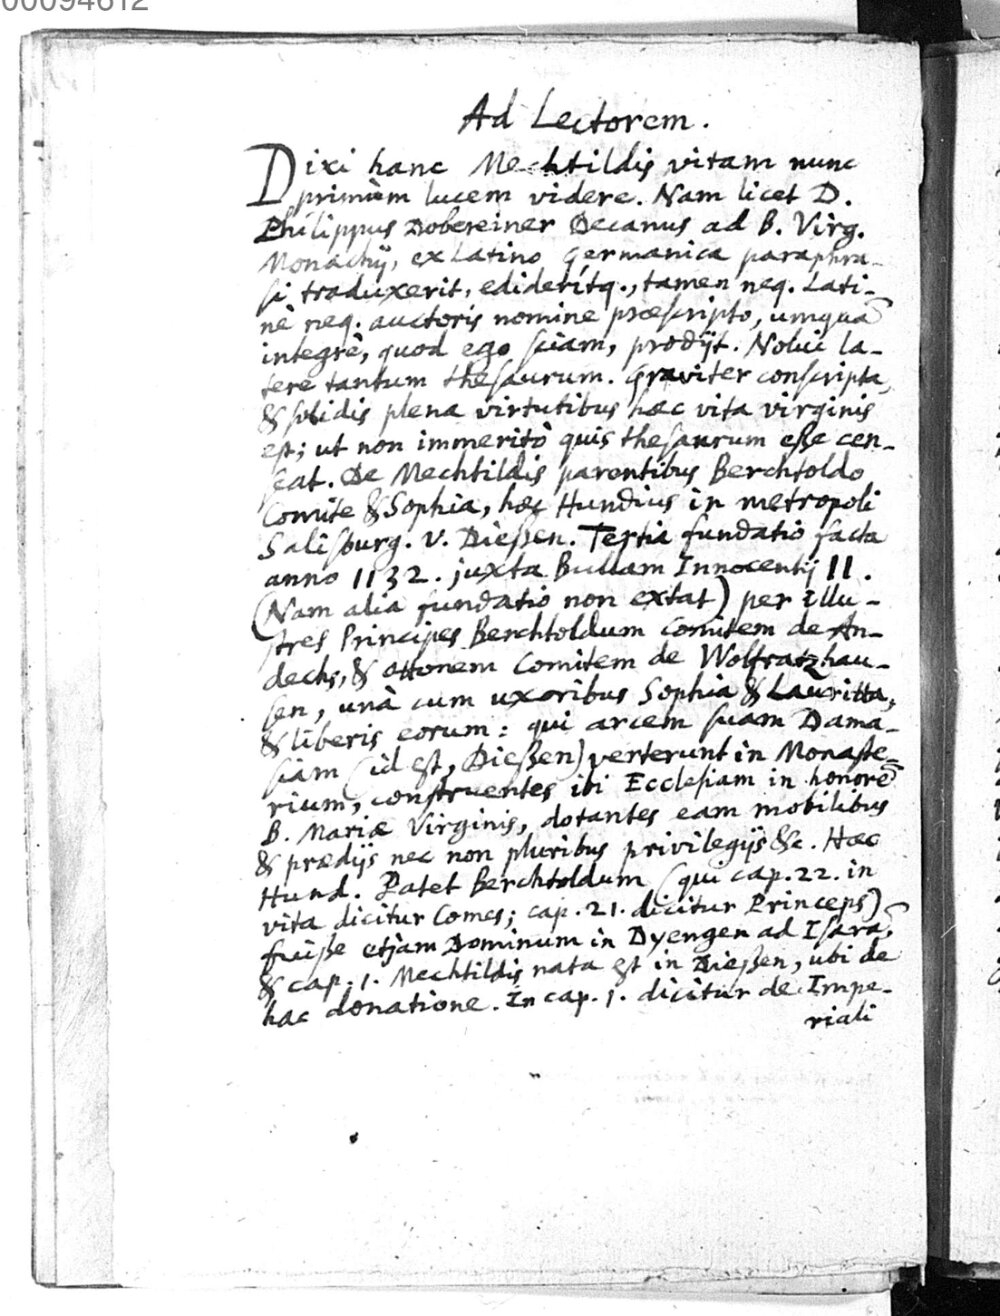 00094612
Ad Lectorem.
Dixi hanc Mechtildis vitam nunc
primùm lucem videre. Nam licet D.
Philippus Dobereiner Decanus ad B. Virg.
Monachij, ex Latino germanica paraphra-
si traduxerit, edideritq., tamen neq. Lati-
nè neq. auctoris nomine præscripto, umquã
integrè, quod ego sciam, prodijt. Nolui la-
tere tantum thesaurum. Graviter conscripta,
& solidis plena virtutibus hæc vita virginis
est; ut non immeritò quis thesaurum eße cen-
seat. De Mechtildis parentibus Berchtoldo
Comite & Sophia, hæc Hundius in metropoli
Salisburg. V. Dießen. Tertia fundatio facta
anno 1132. juxta Bullam Innocentij II.
(Nam alia fundatio non extat) per illu-
stres Principes Berchtoldum Comitem de An-
dechs, & Ottonem Comitem de Wolfratzhau-
sen, unà cum uxoribus Sophia & Lauritta,
& liberis eorum: qui arcem suam Dama-
siam (id est, Dießen) verterunt in Monaste-
rium, construentes ibi Ecclesiam in honorẽ
B. Mariæ Virginis, dotantes eam mobilibus
& prædijs nec non pluribus privilegijs &c. Hæc
Hund. Patet Berchtoldum (qui cap. 22. in
vita dicitur Comes; cap. 21. dicitur Princeps)
fuiße etjam Dominum in Dyengen ad Isarã,
& cap. 1. Mechtildis nata est in Dießen, ubi de
hac donatione. In cap. 1. dicitur de Impe-
riali